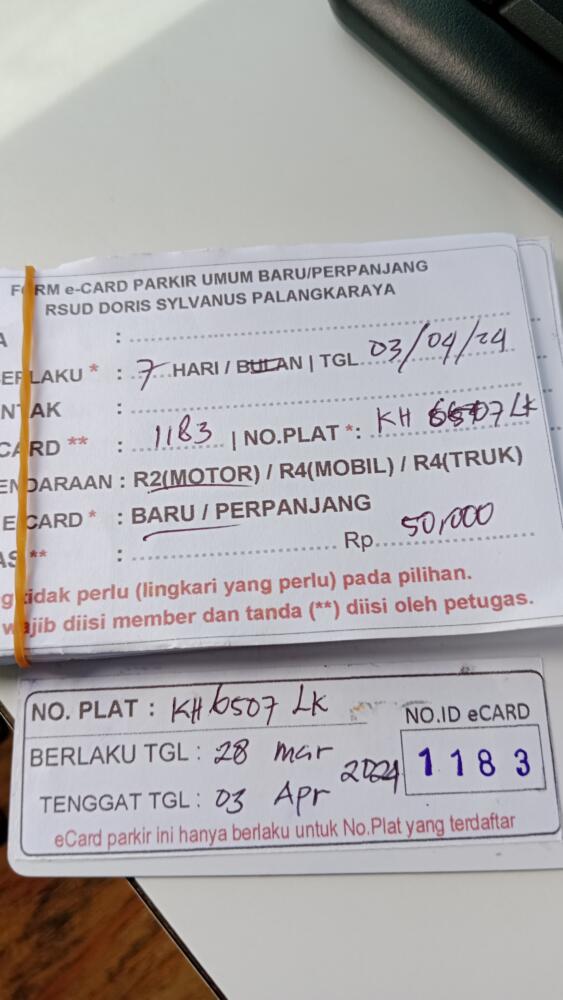 FORM e-CARD PARKIR UMUM BARU/PERPANJANG
RSUD DORIS SYLVANUS PALANGKARAYA
A :
BERLAKU * : 7 HARI / BULAN | TGL 03/04/24
NTAK :
CARD ** : 1183 | NO.PLAT *: KH 6507 LK
ENDARAAN : R2(MOTOR) / R4(MOBIL) / R4(TRUK)
E CARD * : BARU / PERPANJANG
AS ** : Rp. 50,000
g tidak perlu (lingkari yang perlu) pada pilihan.
wajib diisi member dan tanda (**) diisi oleh petugas.
NO. PLAT : KH 6507 LK
NO.ID eCARD
BERLAKU TGL : 28 Mar
2024
1183
TENGGAT TGL : 03 Apr
eCard parkir ini hanya berlaku untuk No.Plat yang terdaftar